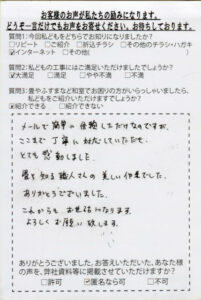 お客様のお声が私たちの励みになります。
どうぞ一言だけでもお声をお寄せください。お待ちしております。
質問1：今回私どもをどちらでお知りになりましたか？
□リピート □ご紹介 □折込チラシ □その他のチラシ・ハガキ
☑インターネット □その他（ ）
質問2：私どもの工事にはご満足いただけましたか？
☑大満足 □満足 □やや不満 □不満
質問3：畳やふすまなどでお困りの方がいらっしゃいましたら、
私どもをご紹介いただけますでしょうか？
☑紹介できる □紹介できない
メールで簡単に依頼しただけなのですが、
ここまで丁寧に対応していただき、
とても感動しました。
畳を知る職人さんの美しい作業でした。
ありがとうございました。
これからもお世話になります。
よろしくお願い致します。
ありがとうございました。お答えいただいた、あなた様
の声を、弊社資料等に掲載させていただけますか？
□許可 ☑匿名なら可 □不可